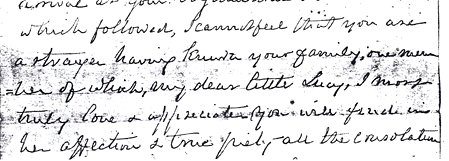 which followed, I cannot feel that you are
a stranger having known your family, one mem
=ber of which, my dear little Lucy, I most
truly love & appreciate. You will find in
her affection & true piety all the consolation